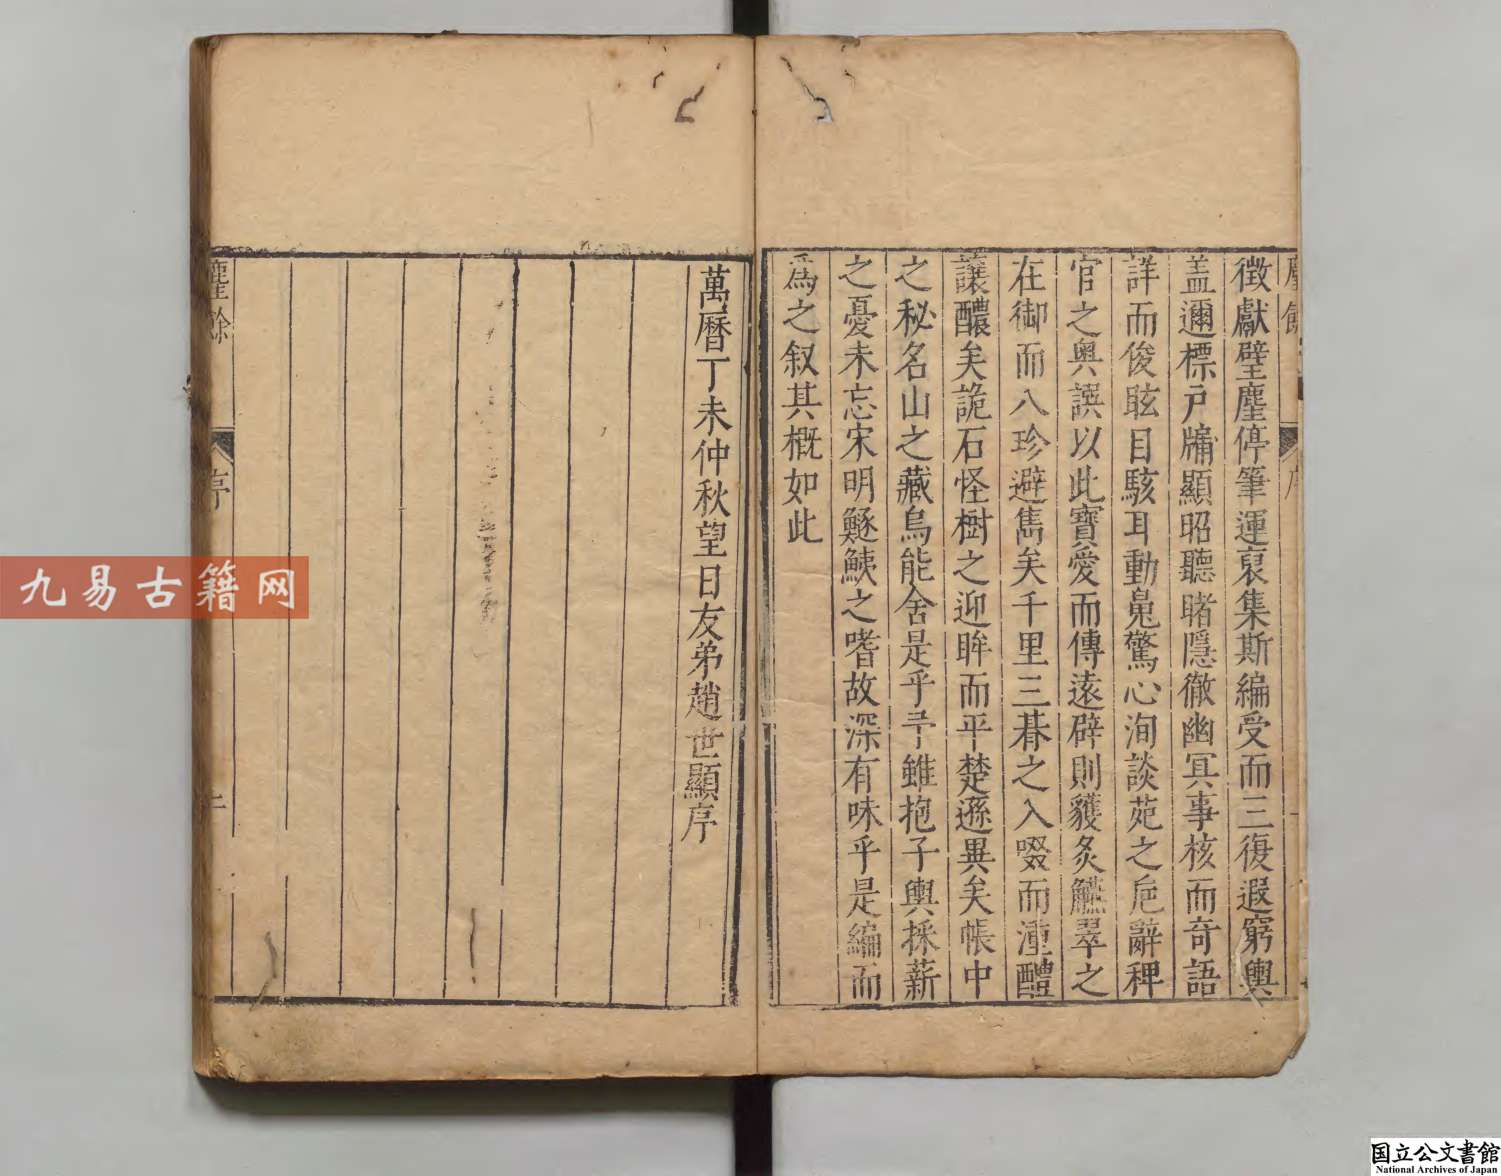 麈餘
序
徵獻璧麈停筆運裒集斯編受而三復遐窮輿
蓋邇標戶牗顯昭聽睹隱徹幽冥事核而奇語
詳而俊眩目駭耳動䰟驚心洵談苑之巵辭稗
官之奥譔以此寶愛而傳逺辟則貜炙觿翠之
在御而八珍避雋矣千里三朞之入啜而湩醴
讓醲矣詭石怪樹之迎眸而平楚遜異矣帳中
之秘名山之藏烏能舍是乎予雖抱子輿採薪
之憂未忘宋明鱁鮧之嗜故深有味乎是編而
爲之叙其概如此
萬曆丁未仲秋望日友弟趙世顯序
麈餘
序
二
九易古籍网
国立公文書館
National Archives of Japan